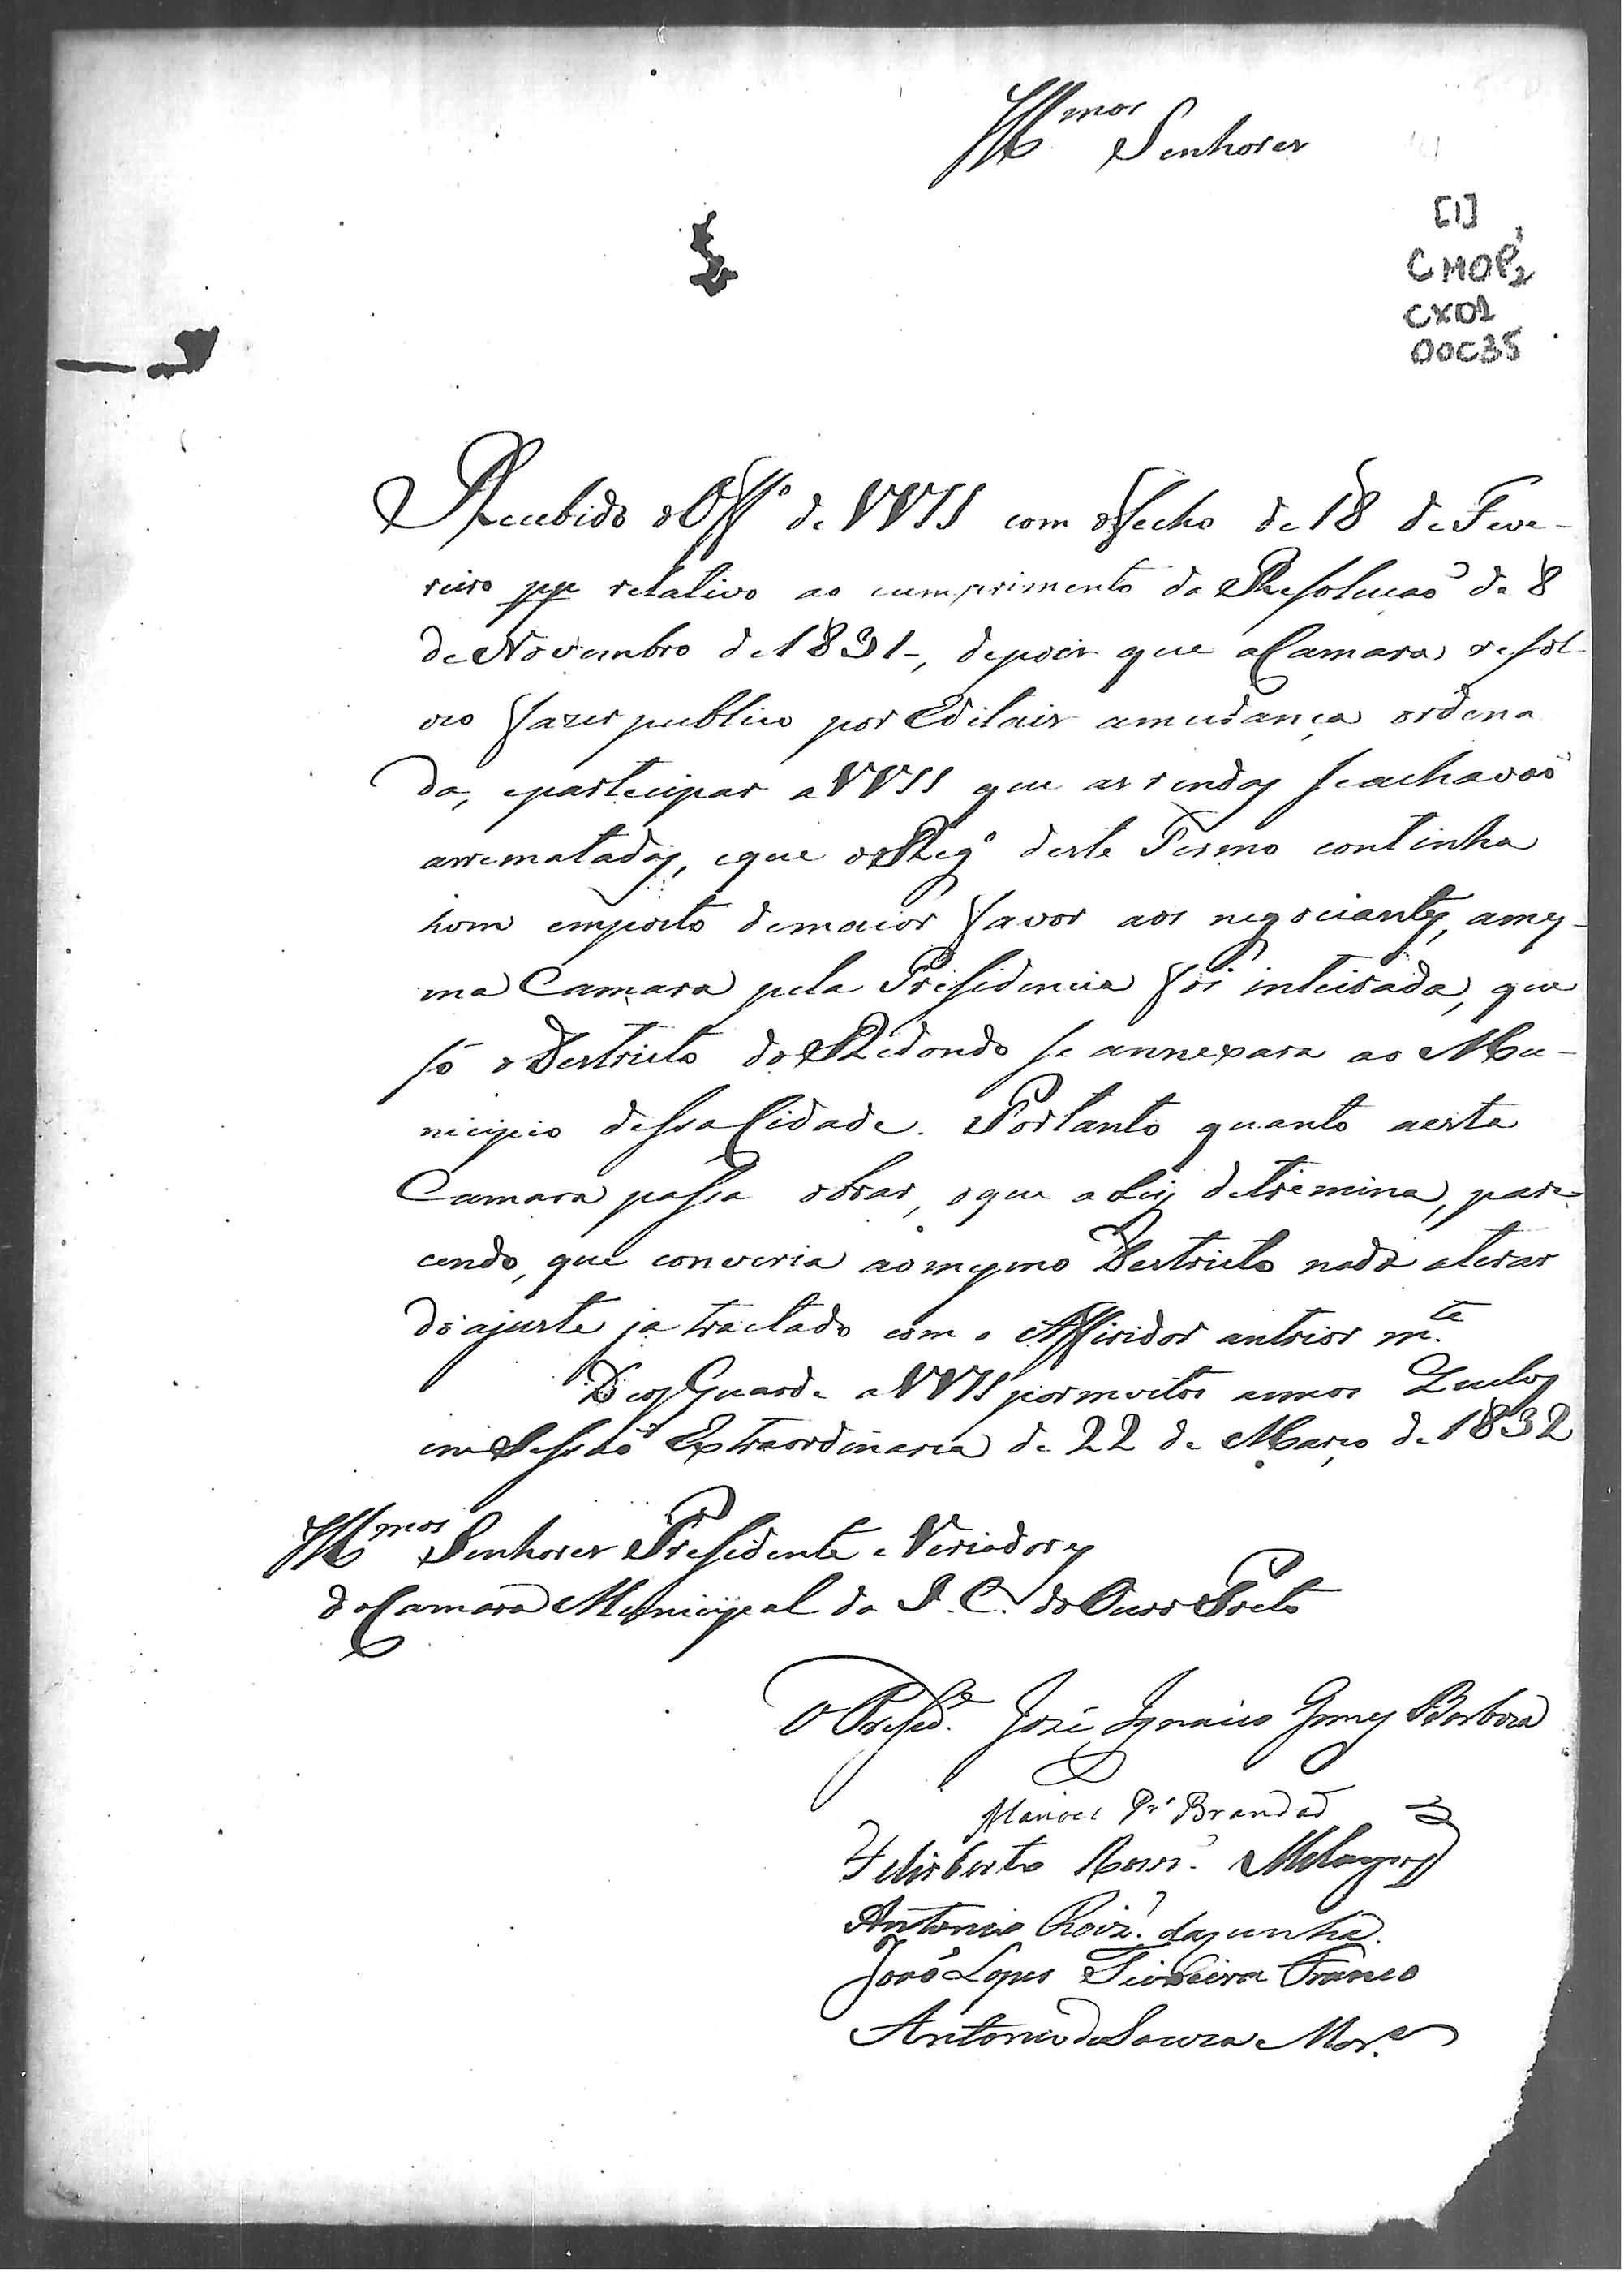 Illmos Senhores
[1]
CMOP2
CX01
00C35
Recebido o Offº de VVSS com ofecho de 18 de Feve-
reiro pp relativo ao cumprimento da Resoluçaõ de 8
de Novembro de 1831-, depois que a Camara resol-
veo fazer publico por Editais amudança ordena
da, eparticipar a VVSS que as rendas seachavaõ
arrematadas, eque o Regº deste Termo continha
hom emposto demaior favor aos negociantes, ames-
ma Camara pela Presidencia foi inteirada, que
só o Destricto do Redondo se annexara ao Mu-
nicipio dessa Cidade. Portanto quanto aesta
Camara passa obrar, oque a Lei detremina, pare-
cendo, que converia aomesmo Destricto nada alterar
do ajuste ja tractado com o Afferidor antrior mte
Deos Guarde a VVSS pormuitos annos Queluz
em Sessaõ Extraordinaria de 22 de Março de 1832
Illmos Senhores Presidente e Veriadores
da Camara Municipal da I. C. do Ouro Preto
O Presede José Ignacio Gomes Barboza
Manoel Pr Brandaõ
Felisberto
Antonio Roiz. dacunha.
Joaõ Lopes Teixeira Franco
Antonio de Souza Mora